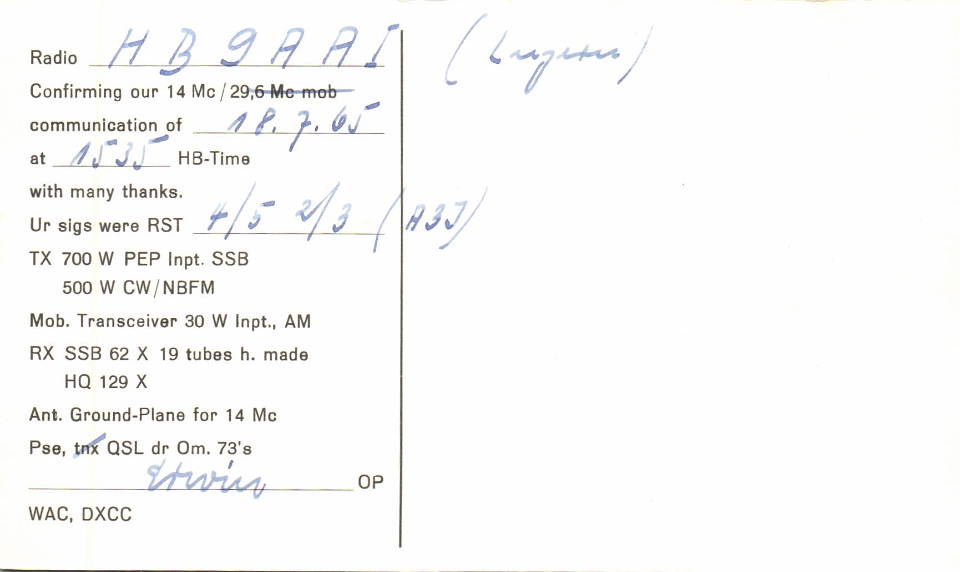 Radio HB9AAI (Luzern)
Confirming our 14 Mc/29,6 Mc mob
communication of 18.7.65
at 1535 HB-Time
with many thanks.
Ur sigs were RST 4/5 2/3 (A3J)
TX 700 W PEP Inpt. SSB
500 W CW/NBFM
Mob. Transceiver 30 W Inpt., AM
RX SSB 62 X 19 tubes h. made
HQ 129 X
Ant. Ground-Plane for 14 Mc
Pse, tnx QSL dr Om. 73's
Erwin OP
WAC, DXCC